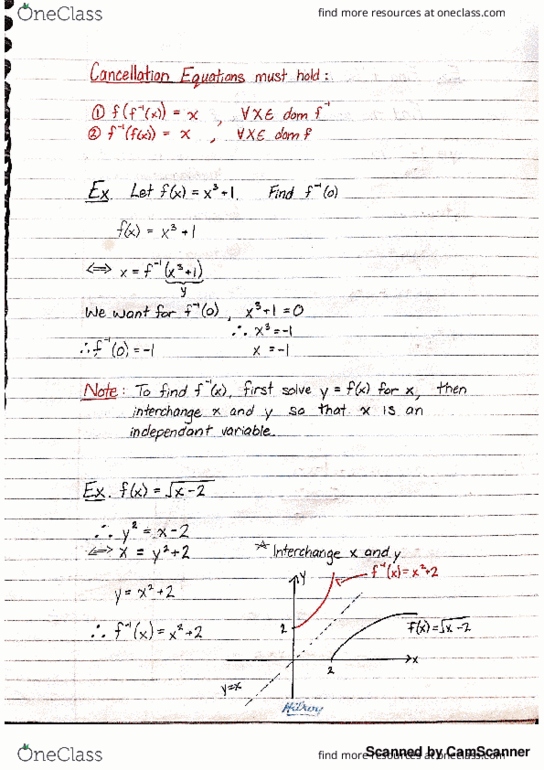 OneClass
find more resources at oneclass.com
Cancellation Equations must hold:
① f(f⁻¹(x)) = x , ∀x∈ dom f⁻¹
② f⁻¹(f(x)) = x , ∀x∈ dom f
Ex. Let f(x) = x³+1. Find f⁻¹(0)
f(x) = x³+1
⟺ x = f⁻¹(x³+1)
y
We want for f⁻¹(0), x³+1 = 0
∴ x³ = -1
∴ f⁻¹(0) = -1 x = -1
Note: To find f⁻¹(x), first solve y = f(x) for x, then
interchange x and y so that x is an
independant variable.
Ex. f(x) = √x-2
∴ y² = x-2
⟺ x = y²+2
☆ Interchange x and y
y = x²+2
∴ f⁻¹(x) = x²+2
y
f⁻¹(x) = x²+2
2
f(x) = √x-2
x
2
y=x
Hilroy
Scanned by CamScanner
OneClass
find more resources at oneclass.com